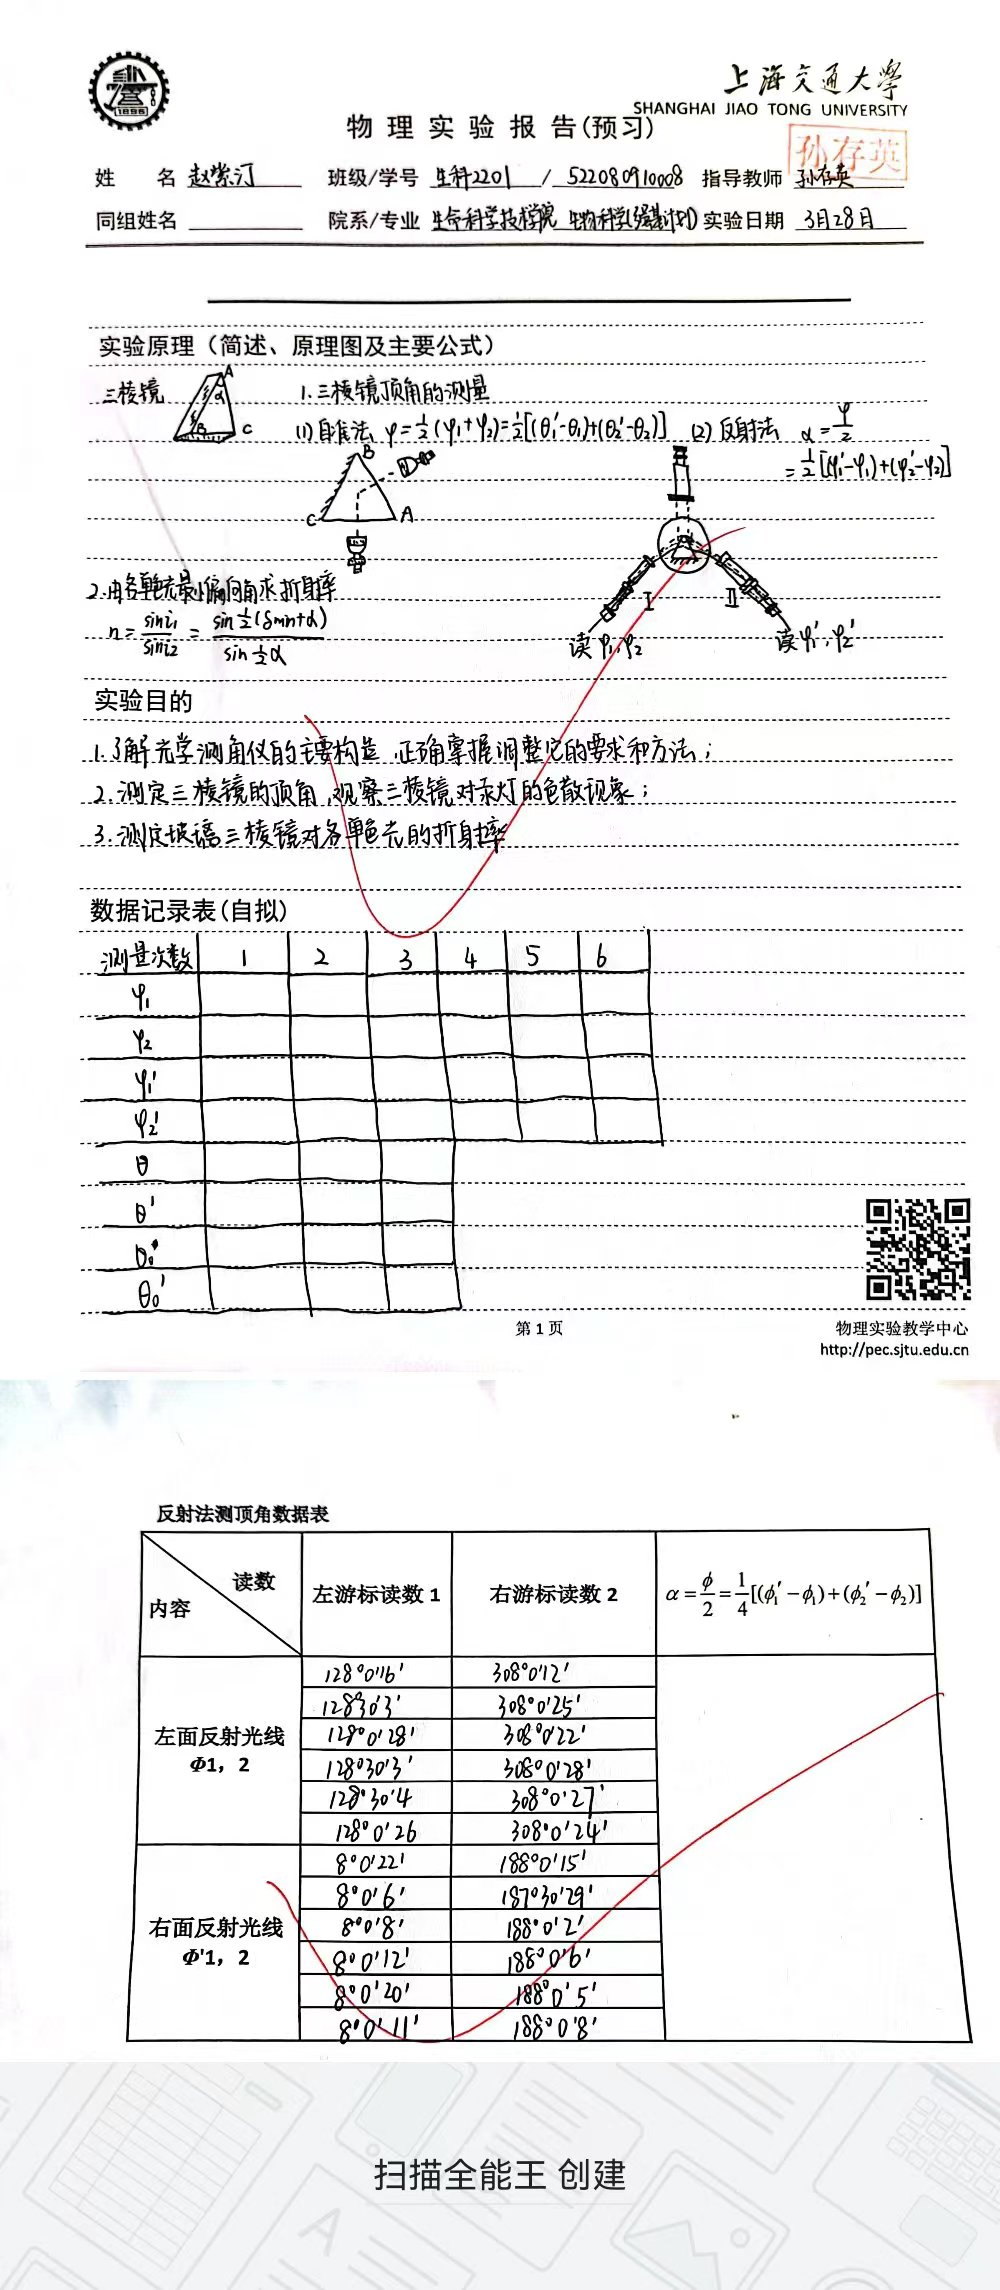 上海交通大學
SHANGHAI JIAO TONG UNIVERSITY
1896
物理实验报告(预习)
孙存英
姓 名 赵紫汀 班级/学号 生科2201 / 522080910008 指导教师 孙存英
同组姓名 院系/专业 生命科学技术学院 生物科学(强基计划) 实验日期 3月28日
实验原理（简述、原理图及主要公式）
三棱镜 A α B C
1.三棱镜顶角的测量
(1)自准法 φ=½(φ₁+φ₂)=½[(θ₁'-θ₁)+(θ₂'-θ₂)] (2)反射法 α=φ/2
=½[(φ₁'-φ₁)+(φ₂'-φ₂)]
B
C A
2.由各单色光最小偏向角求折射率
n=sini₁/sini₂=sin½(δmin+α)/sin½α
I II
读φ₁,φ₂ 读φ₁',φ₂'
实验目的
1.了解光学测角仪的主要构造,正确掌握调整它的要求和方法;
2.测定三棱镜的顶角,观察三棱镜对汞灯的色散现象;
3.测定玻璃三棱镜对各单色光的折射率
数据记录表(自拟)
测量次数 1 2 3 4 5 6
φ₁
φ₂
φ₁'
φ₂'
θ
θ'
θ₀
θ₀'
第 1 页
物理实验教学中心
http://pec.sjtu.edu.cn
反射法测顶角数据表
读数
内容
左游标读数 1 右游标读数 2 α=ϕ/2=1/4[(ϕ₁'-ϕ₁)+(ϕ₂'-ϕ₂)]
左面反射光线
Φ1，2
128°0'16' 308°0'12'
128°30'3' 308°0'25'
128°0'28' 308°0'22'
128°30'3' 308°0'28'
128°30'4 308°0'27'
128°0'26 308°0'24'
右面反射光线
Φ'1，2
8°0'22' 188°0'15'
8°0'6' 187°30'29'
8°0'8' 188°0'2'
8°0'12' 188°0'6'
8°0'20' 188°0'5'
8°0'11' 188°0'8'
扫描全能王 创建